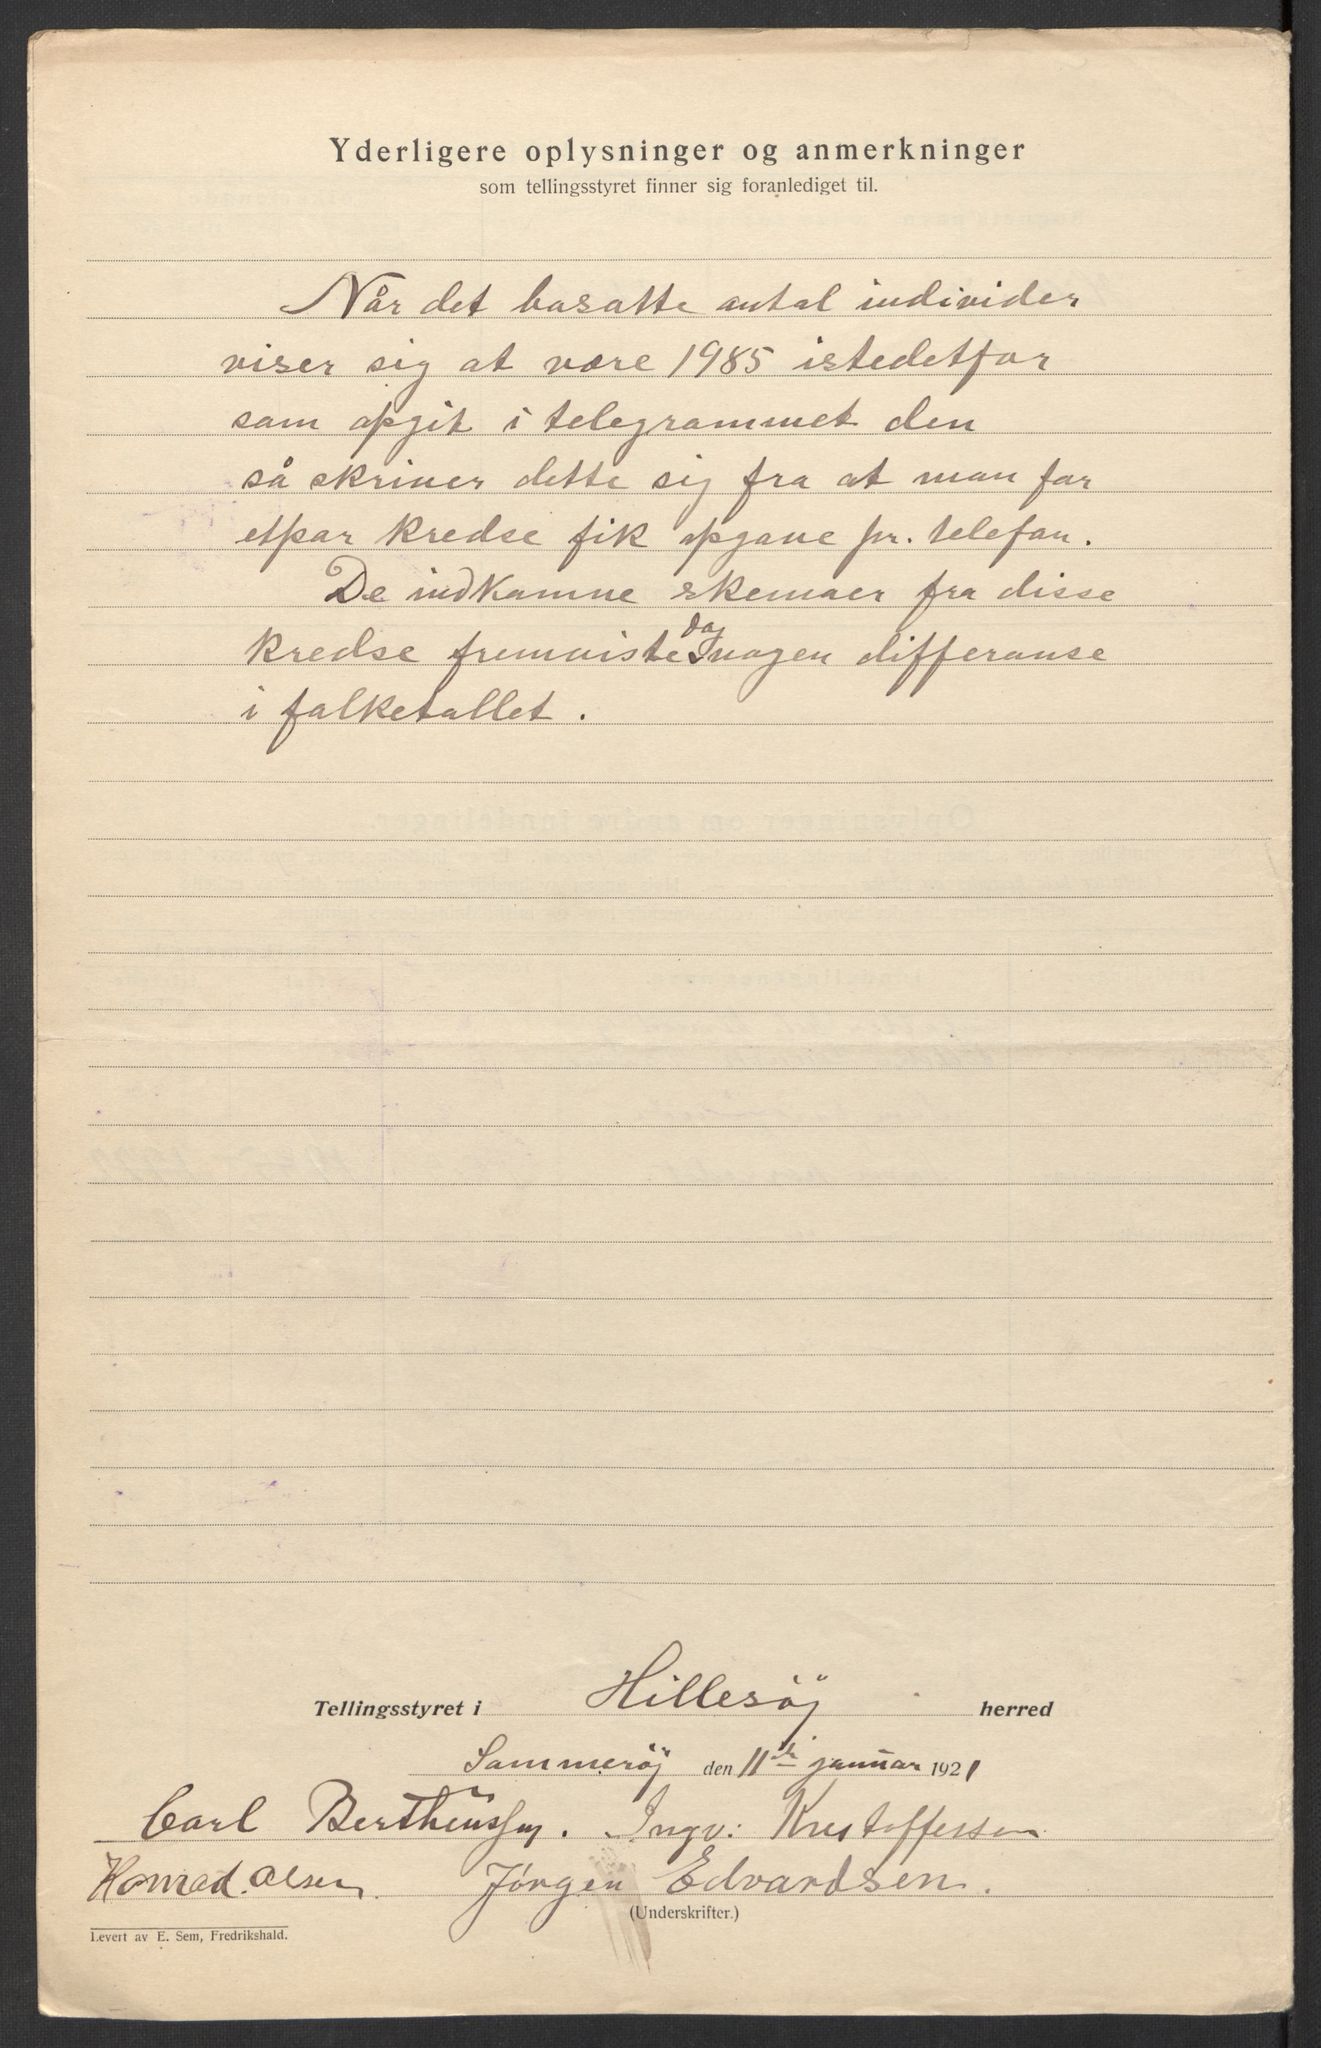 Yderligere oplysninger og anmerkninger
som tellingsstyret finner sig foranlediget til.
Når det bosatte antal individer
viser sig at være 1985 istedetfor
som opgit i telegrammet den
så skriver dette sig fra at man for
etpar kredse fik opgave pr. telefon.
De indkomne skemaer fra disse
kredse fremviste dog nogen differanse
i folketallet.
Tellingsstyret i Hillesöj herred
Sommeröj den 11te januar 1921
Carl Bertheussen. Ingv: Kristoffersen
Konrad. Olsen. Jörgen Edvardsen.
(Underskrifter.)
Levert av E. Sem, Fredrikshald.